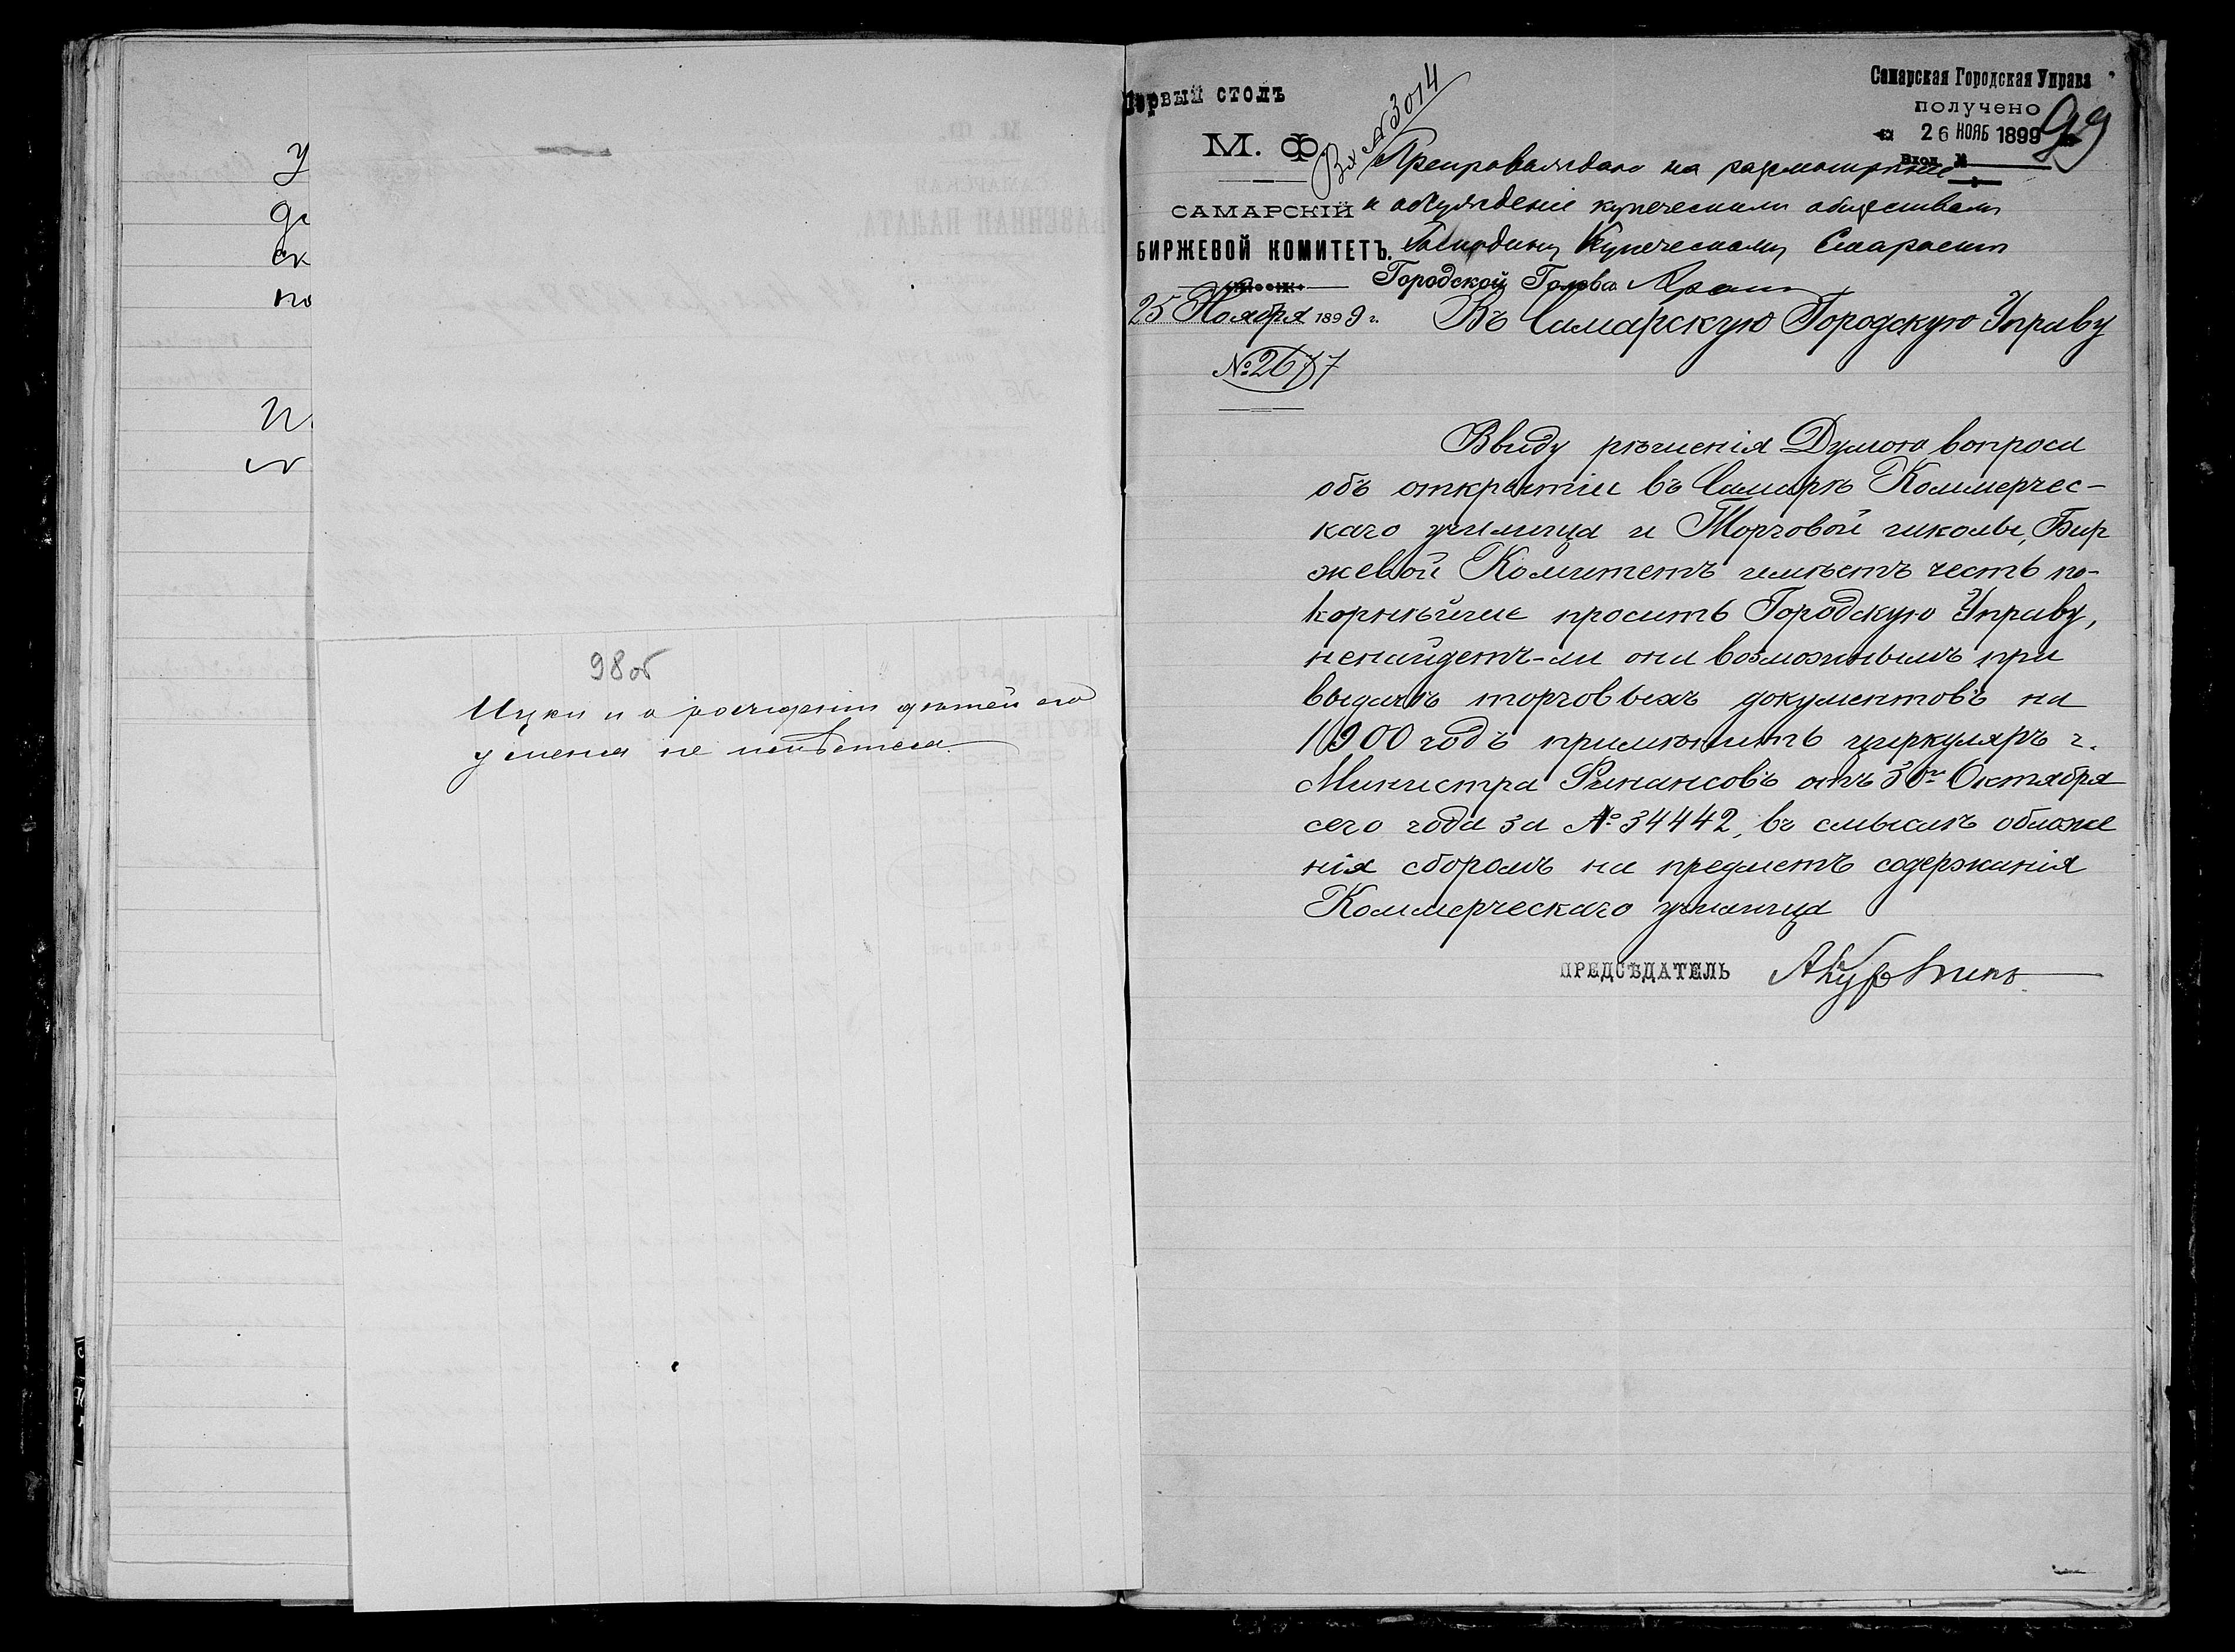 У
де
ск
по
98об
и о рождении детей его
у меня не имѣется
Первый столъ
Вх № 3014
Самарская Городская Управа
получено
26 НОЯБ 1899
Вход. №
99
М. Ф.
Препровождаю на разсмотрѣніе
САМАРСКІЙ
и обсужденіе купеческимъ обществомъ
БИРЖЕВОЙ КОМИТЕТЪ.
Господину Купеческому Старостѣ
Городской Голова
25 Ноября 1899 г.
Въ Самарскую Городскую Управу
№ 2677
Ввиду рѣшенія Думою вопроса
объ открытіи въ Самарѣ Коммерчес-
каго училища и Торговой школы, Бир
жевой Комитетъ имѣетъ честь по-
корнѣйше просить Городскую Управу,
ненайдетъ-ли она возможнымъ при
выдачѣ торговыхъ документовъ на
1900 годъ примѣнить циркуляръ г.
Министра Финансовъ отъ 30го Октября
сего года за № 34442, въ смыслѣ обложе
нія сборомъ на предметъ содержанія
Коммерческаго училища
ПРЕДСѢДАТЕЛЬ